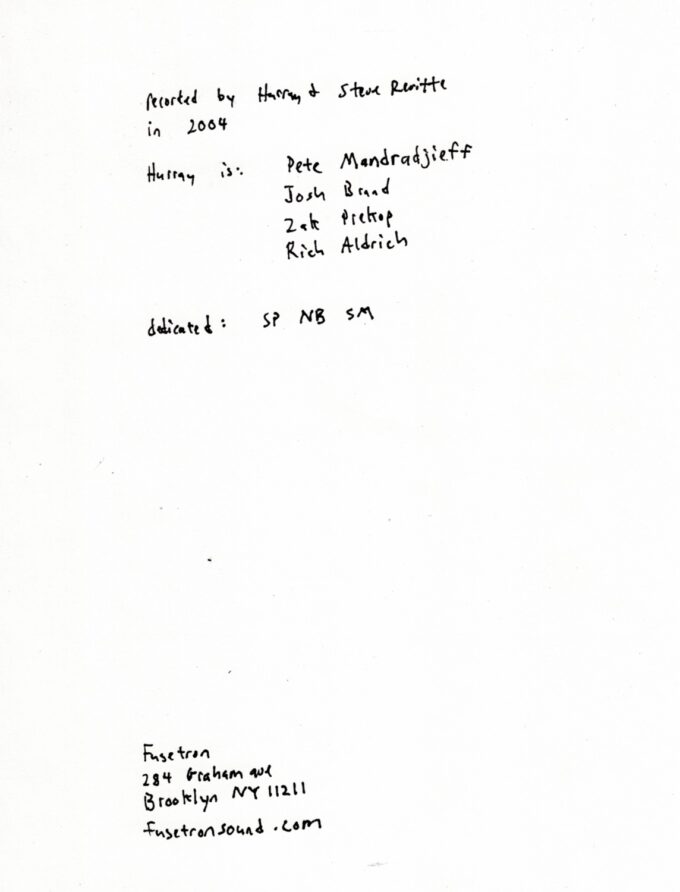 recorded by Hurray & Steve Revitte
in 2004
Hurray is: Pete Mandradjieff
Josh Brand
Zak Prekop
Rich Aldrich
dedicated: SP NB SM
Fusetron
284 Graham ave
Brooklyn NY 11211
fusetronsound.com